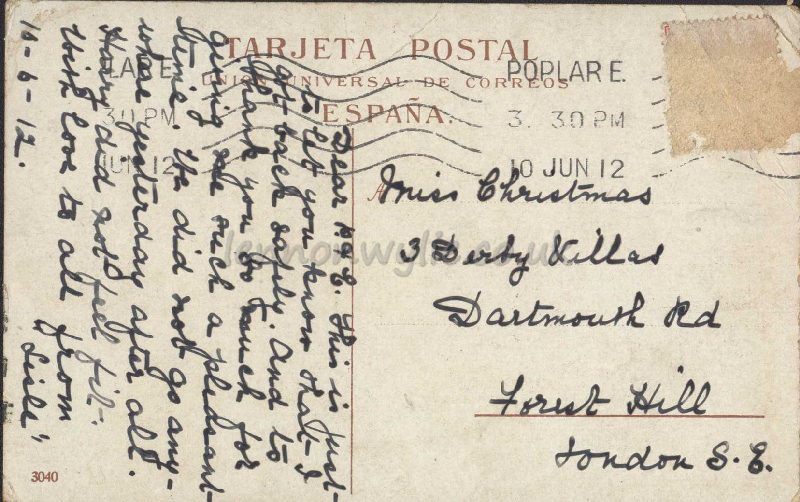 TARJETA POSTAL
UNION UNIVERSAL DE CORREOS
ESPAÑA.
LAR E.
30 PM
JUN 12
POPLAR E.
3. 30 PM
10 JUN 12
Miss Christmas
3 Derby Villas
Dartmouth Rd
Forest Hill
London S.E.
Dear This is just
to let you know that I
got back safely. And to
thank you so much for
giving me such a pleasant
time. We did not go any-
where yesterday after all.
Harry did not feel fit.
With love to all from
10-6-12.
3040
lennonwylie.co.uk